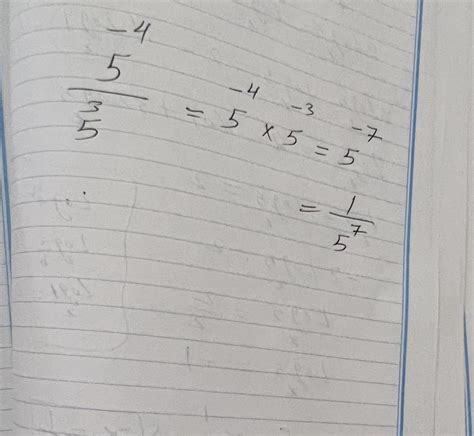 5⁻⁴/5³ = 5⁻⁴ × 5⁻³ = 5⁻⁷
= 1/5⁷